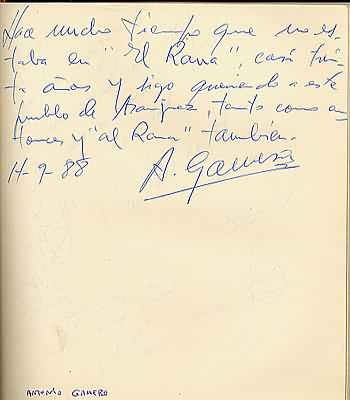 Hace mucho tiempo que no es-
taba en "El Rana", casi trein-
ta años y sigo queriendo a este
pueblo de Aranjuez, tanto como en-
tonces y "al Rana" también.
14-9-88 A. Gamero
ANTONIO GAMERO